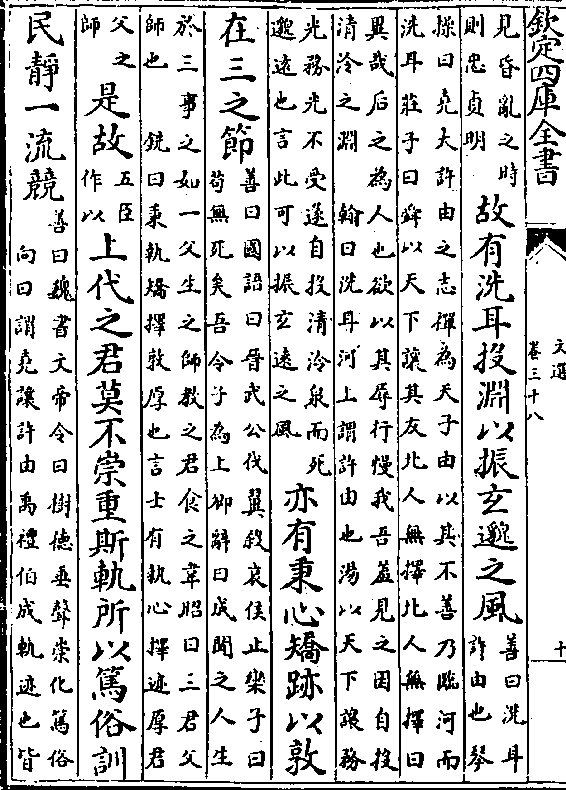 欽定四庫全書
文選
卷三十八
十
見昏亂之時
則忠貞明
故有洗耳投淵以振玄邈之風
善曰洗耳
許由也琴
操曰堯大許由之志禪為天子由以其不善乃臨河而
洗耳莊子曰舜以天下讓其友北人無擇北人無擇曰
異哉后之為人也欲以其辱行慢我吾羞見之因自投
清泠之淵 翰曰洗耳河上謂許由也湯以天下讓務
光務光不受遂自投清泠泉而死
邈遠也言此可以振玄遠之風
亦有秉心矯跡以敦
在三之節
善曰國語曰晉武公伐翼殺哀侯止欒子曰
苟無死矣吾令子為上卿辭曰成聞之人生
於三事之如一父生之師教之君食之韋昭曰三君父
師也 銑曰秉執矯擇敦厚也言士有執心擇迹厚君
父之
師
是故
五臣
作以
上代之君莫不崇重斯軌所以篤俗訓
民靜一流競
善曰魏書文帝令曰樹德垂聲崇化篤俗
向曰謂堯讓許由禹禮伯成軌迹也皆